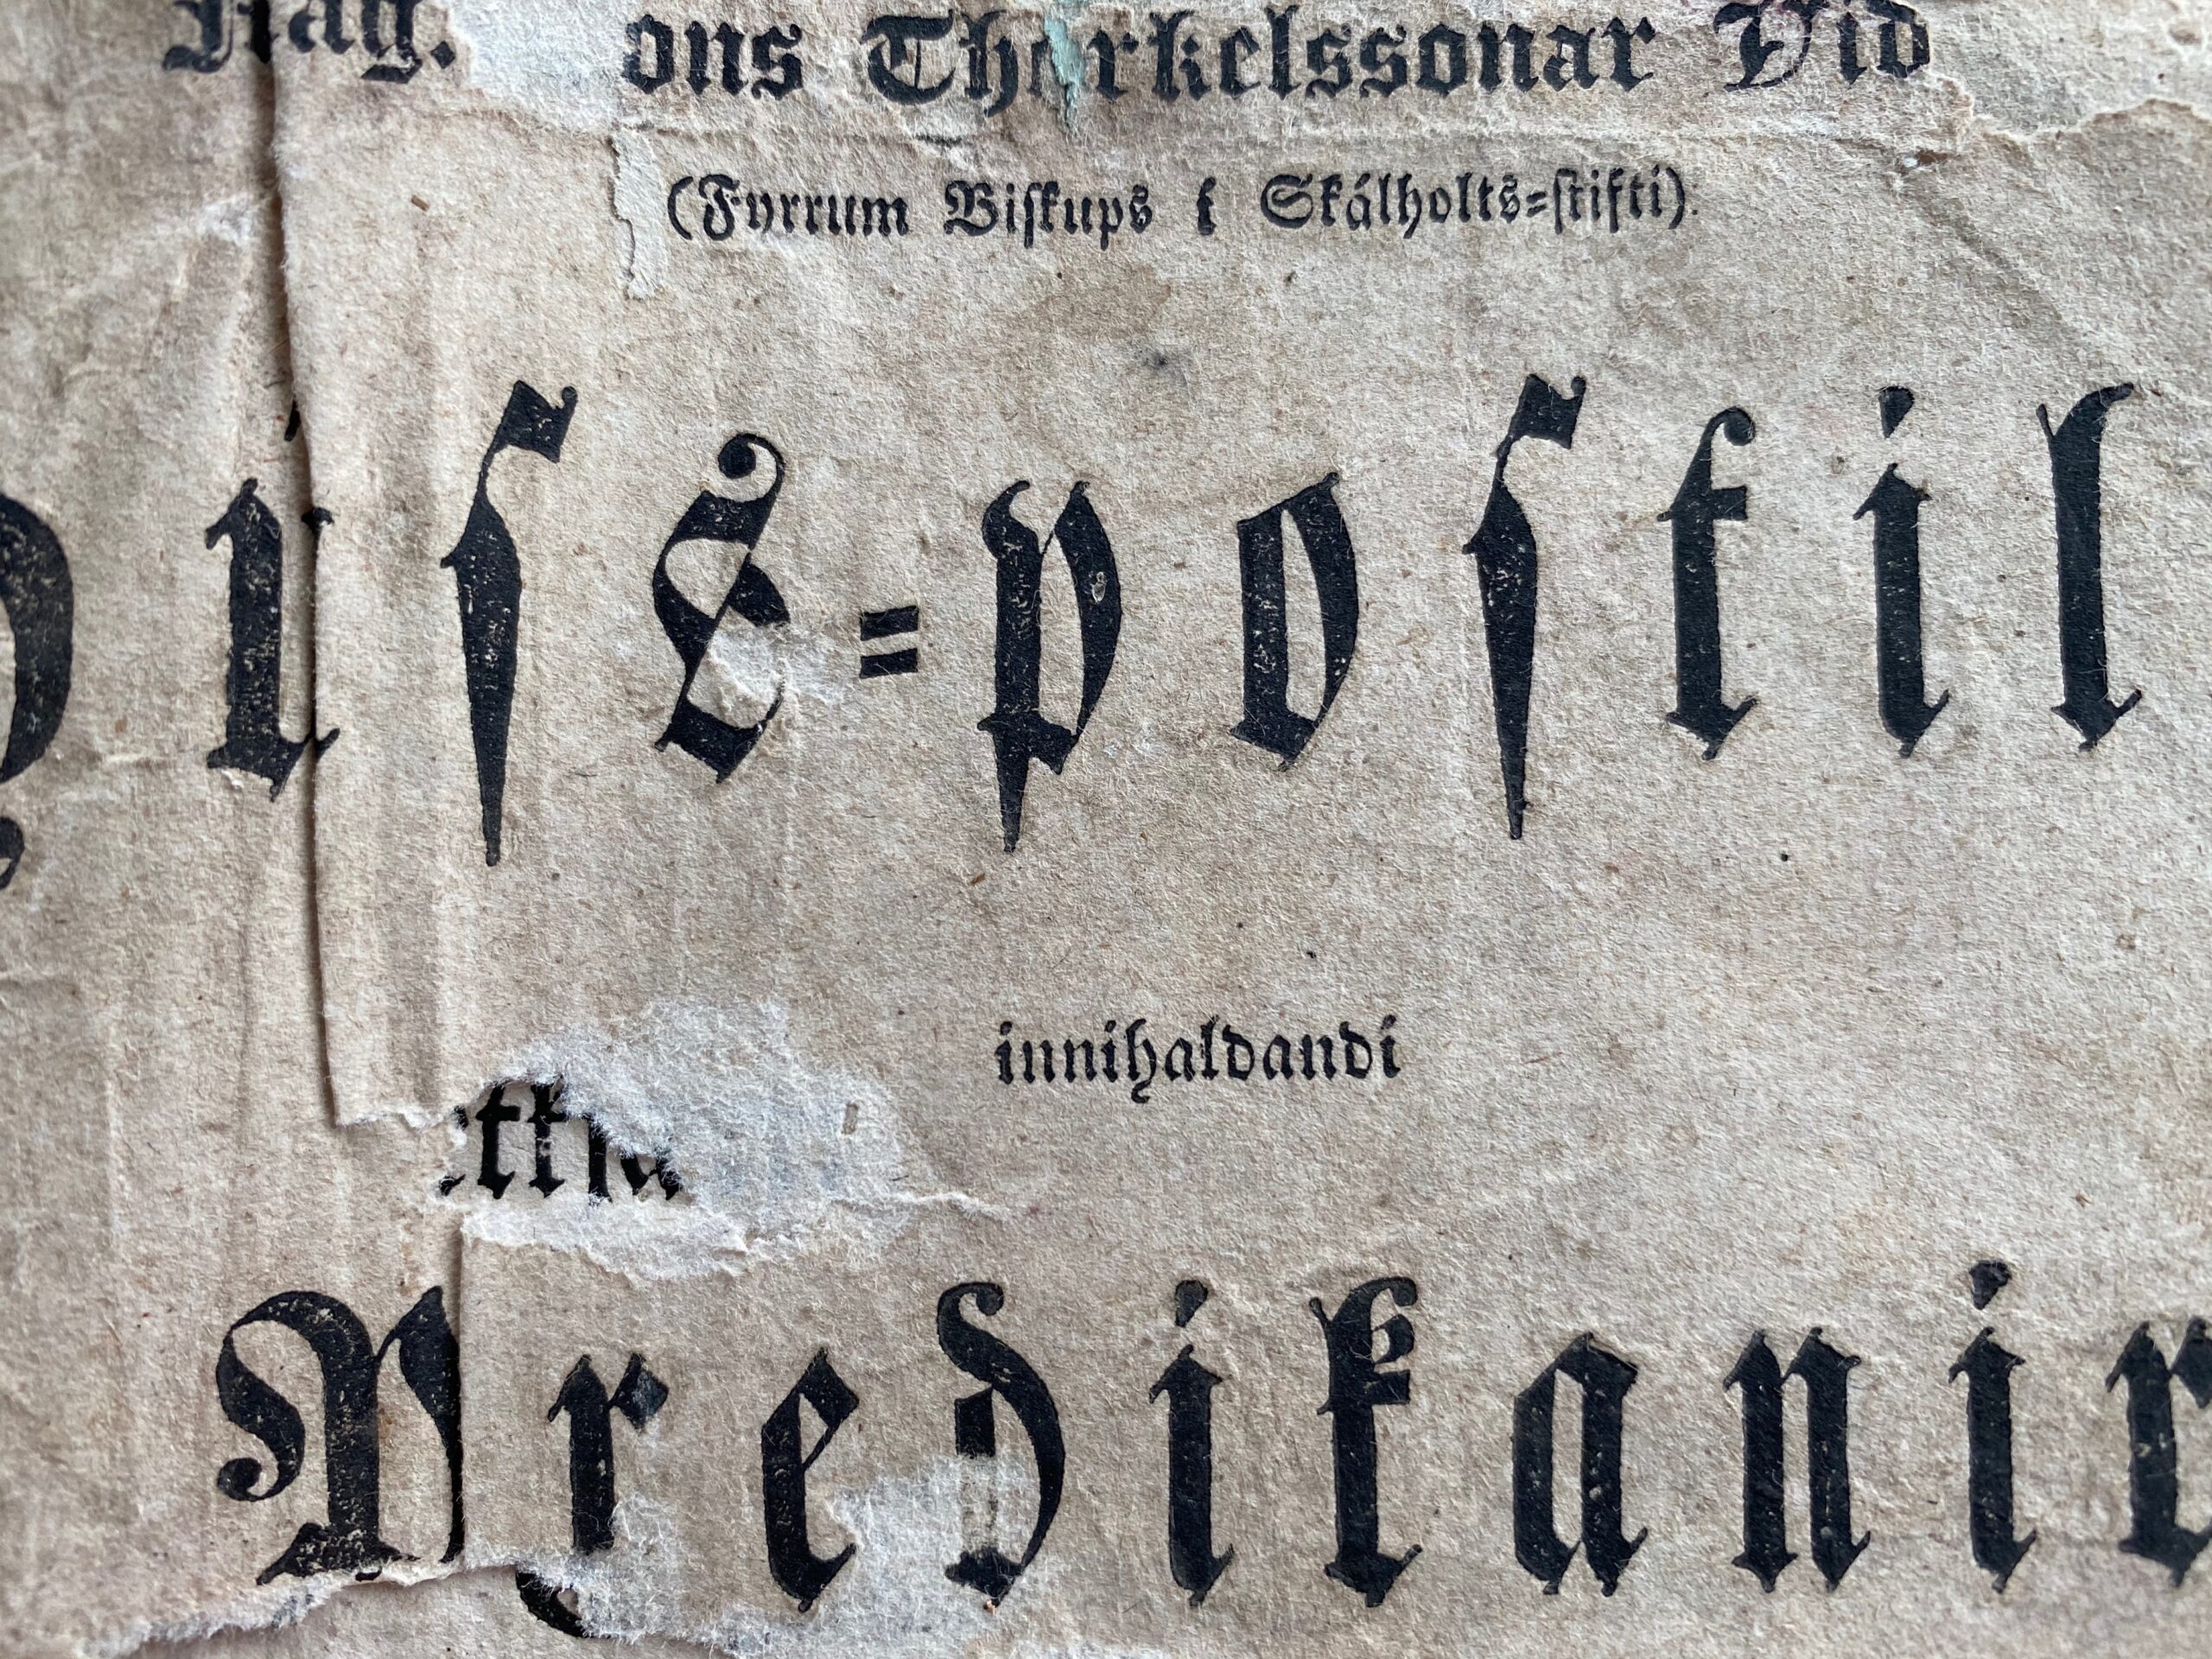 Mag. ons Thorkelssonar Vid
(Fyrrum Biskups í Skálholts=stifti).
ússs=postil
innihaldandi
Predikanir